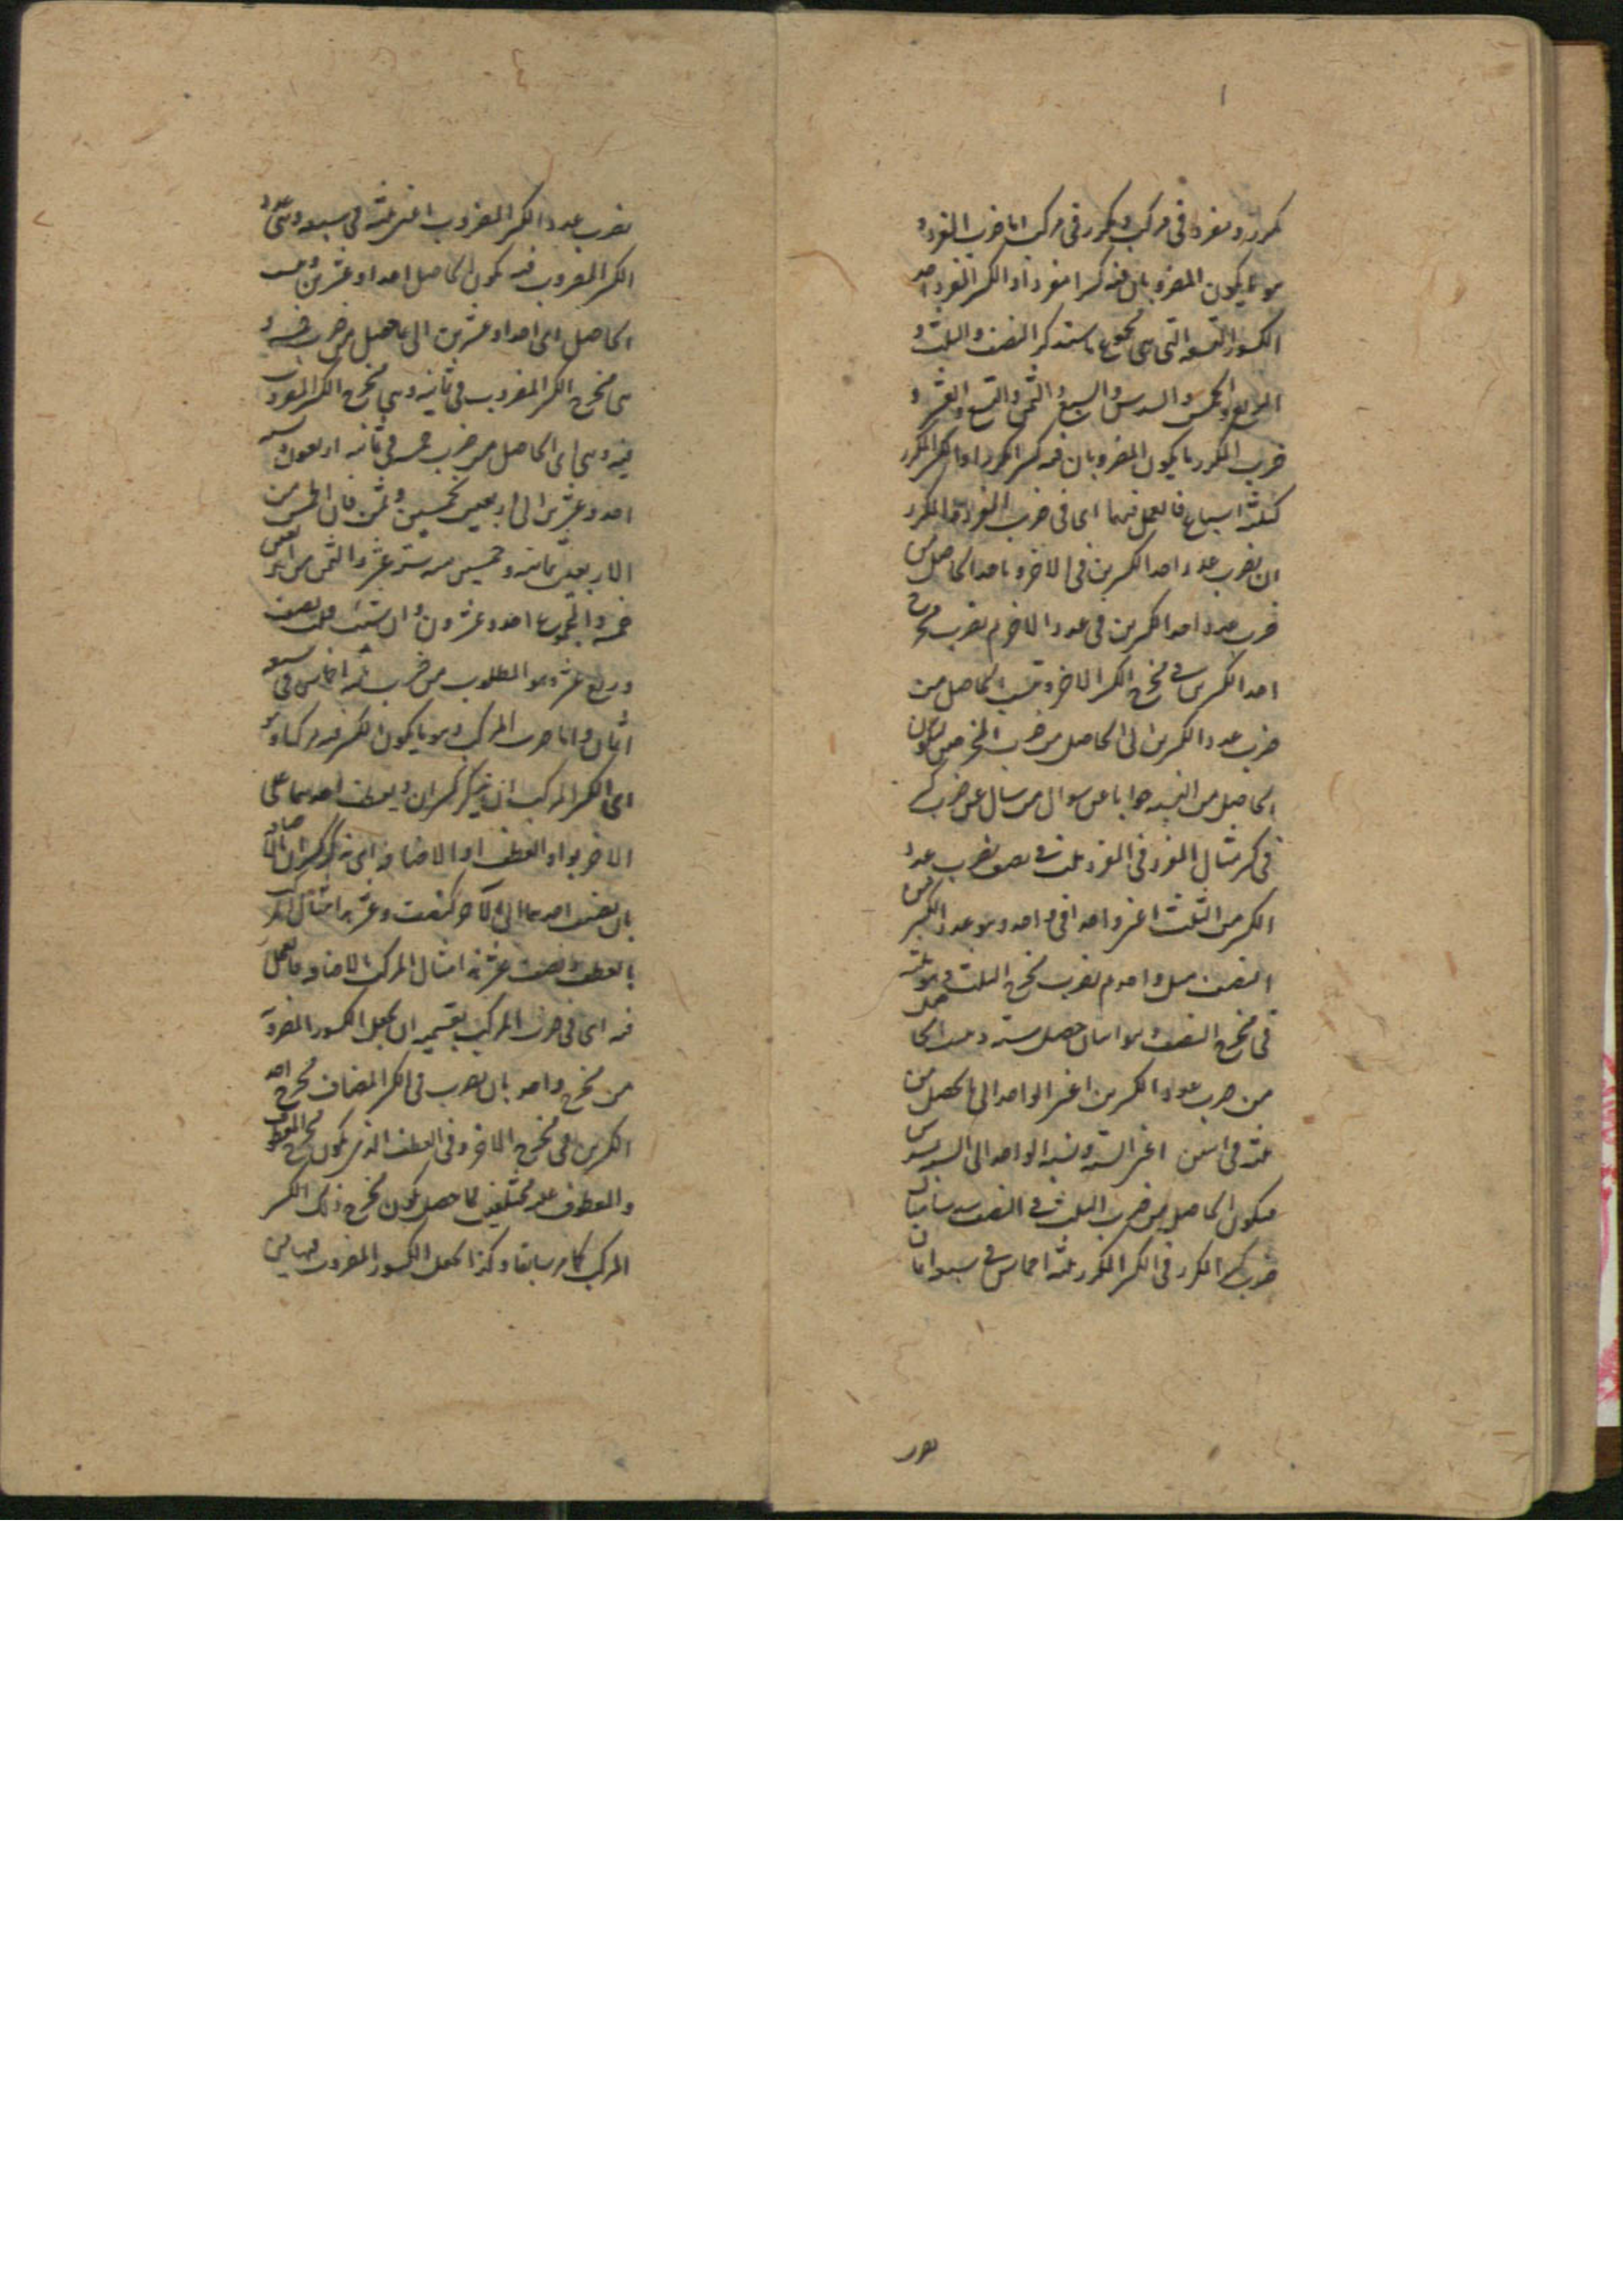 مكرر ومفرد فى مركب ومكرر فى مركب اما ضرب المفرد و
هو ما يكون المضروبان فيه كسرا مفردا والكسر المفرد احد
الكسور التسعة التى هى مجموع ما ستذكر النصف والثلث و
الربع والخمس والسدس والسبع والثمن والتسع والعشر و
ضرب المكرر ما يكون المضروبان فيه كسر المكرر او الكسر المكرر
كثلثة اسباع فالعمل فيهما اى فى ضرب المفرد والمكرر
ان تضرب عدد احد الكسرين فى الاخر وناخذ الحاصل من
ضرب عدد احد الكسرين فى عدد الاخر ثم تضرب مخرج
احد الكسرين فى مخرج الكسر الاخر وتنسب الحاصل من
ضرب عدد الكسرين الى الحاصل من ضرب المخرجين ليكون
الحاصل من النسبة جوابا عن سوال من سال عن ضرب كسر
فى كسر مثال المفرد فى المفرد ثلث فى نصف تضرب عدد
الكسر من الثلث اعنى واحدا فى واحد وهو عدد الكسر من
النصف حصل واحد ثم تضرب مخرج الثلث وهو ثلثة
فى مخرج النصف وهو اثنان حصل ستة ونسبت الحاصل
من ضرب عدد الكسرين اعنى الواحد الى ما يحصل من
ثلثة فى اثنين اعنى الستة ونسبة الواحد الى الستة سدس
فيكون الحاصل من ضرب الثلث فى النصف سدسا مثال
ضرب كسر المكرر فى الكسر المكرر ثلثة اخماس فى سبعة اثمان
تضرب
تضرب عدد الكسر المضروب اعنى ثلثة فى سبعة وهى عدد
الكسر المضروب فيه يكون الحاصل احدا وعشرين ونسبت
الحاصل اى احدا وعشرين الى ما حصل من ضرب خمسة و
هى مخرج الكسر المضروب فى ثمانية وهى مخرج الكسر المضروب
فيه وهى اى الحاصل من ضرب خمسة فى ثمانية اربعون ونسبة
احد وعشرين الى اربعين بخمسين وثمن فان الخمس من
الاربعين ثمانية وخمسين منه ستة عشر والثمن من اربعين
خمسة والمجموع احد وعشرون وان شئت قلت نصف
وربع عشر وهو المطلوب من ضرب ثلثة اخماس فى سبعة
اثمان واما ضرب المركب وهو ما يكون الكسر فيه مركبا وهو
اى الكسر المركب ان يذكر كسران ويعطف احدهما على
الاخر بواو العطف او الاضافة اى يذكر كسران بالاضافة
بان يضيف احدهما الى الاخر كنصف وعشر هذا مثال المركب
بالعطف ونصف عشر هذا مثال المركب بالاضافة فالعمل
فيه اى فى ضرب المركب بقسميه ان يجعل الكسور المضروبة
من مخرج واحد بان تضرب فى الكسر المضاف مخرج احد
الكسرين فى مخرج الاخر وفى العطف الذى يكون مخرج المعطوف
والمعطوف عليه مختلفين فما حصل يكون مخرج ذلك الكسر
المركب كما مر سابقا وكذا يجعل الكسور المضروب فيها من